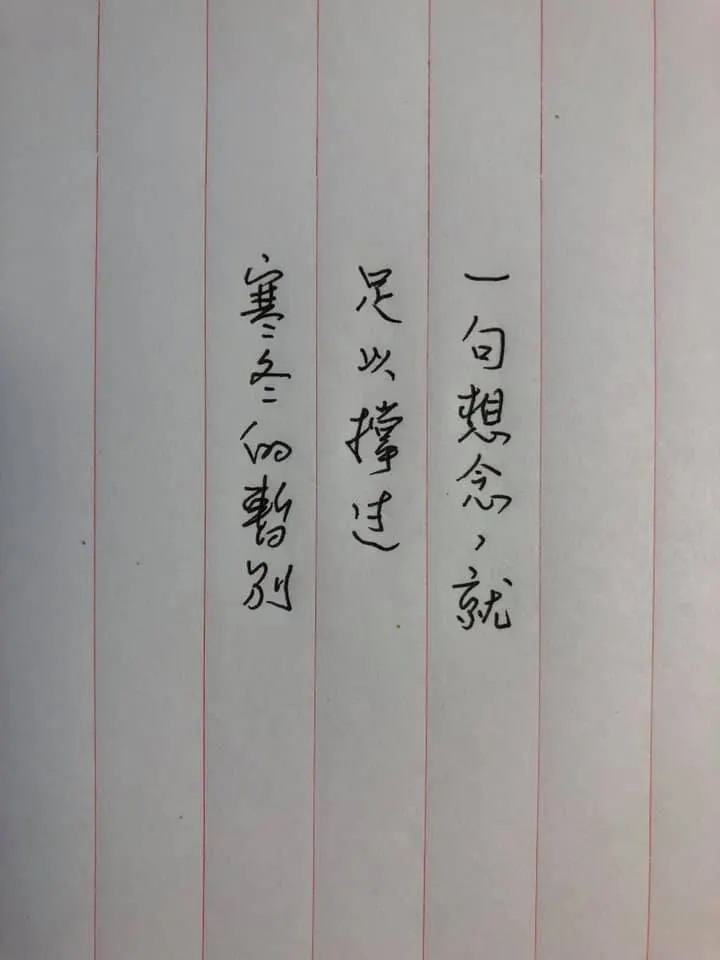 一句想念，就
足以撐过
寒冬的暫别